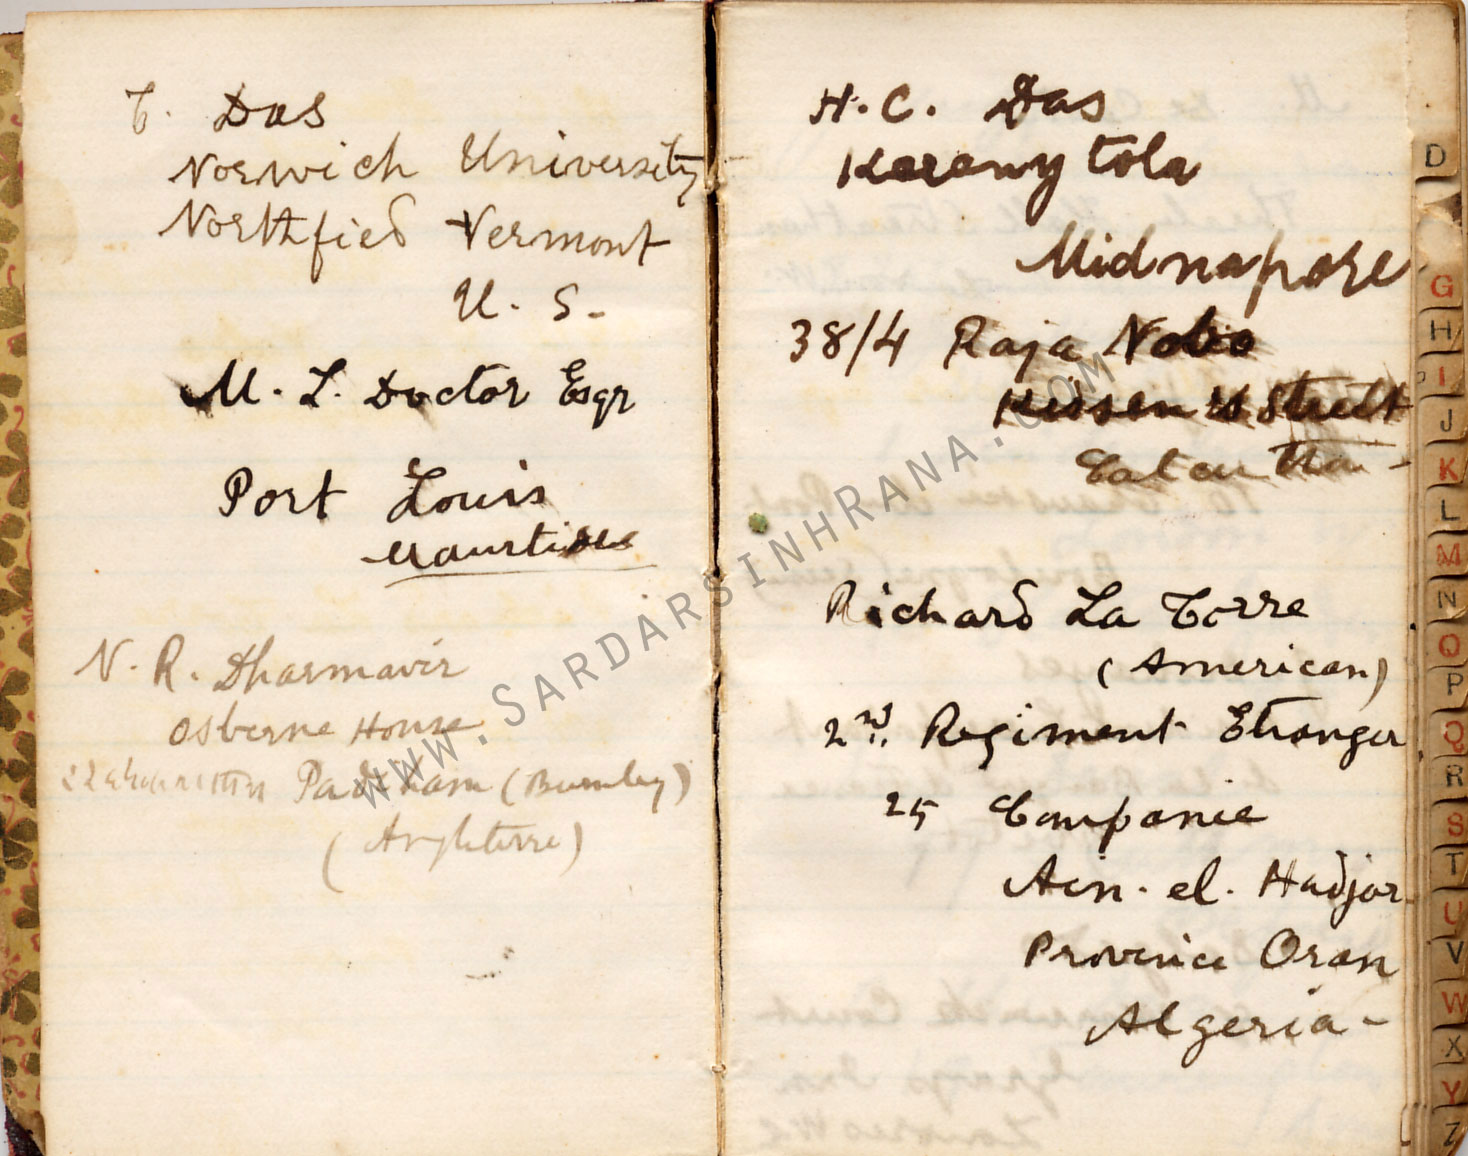 T. Das
Norwich University
Northfied Vermont
U. S.
M. L. Doctor Esqr
Port Louis
N. R. Dharmavir
Osberne House
Padiham (Burnley)
(Angleterre)
H. C. Das
Kerany tola
Midnapore
38/4 Raja Nobo
Kissen's Street
Calcutta -
Richard La Torre
(American)
2nd. Regiment Etranger
25 Companie
Ain. el. Hadjar
Province Oran
Algeria -
D
G
H
I
J
K
L
M
N
O
P
Q
R
S
T
U
V
W
X
Y
Z
WWW.SARDARSINHRANA.COM